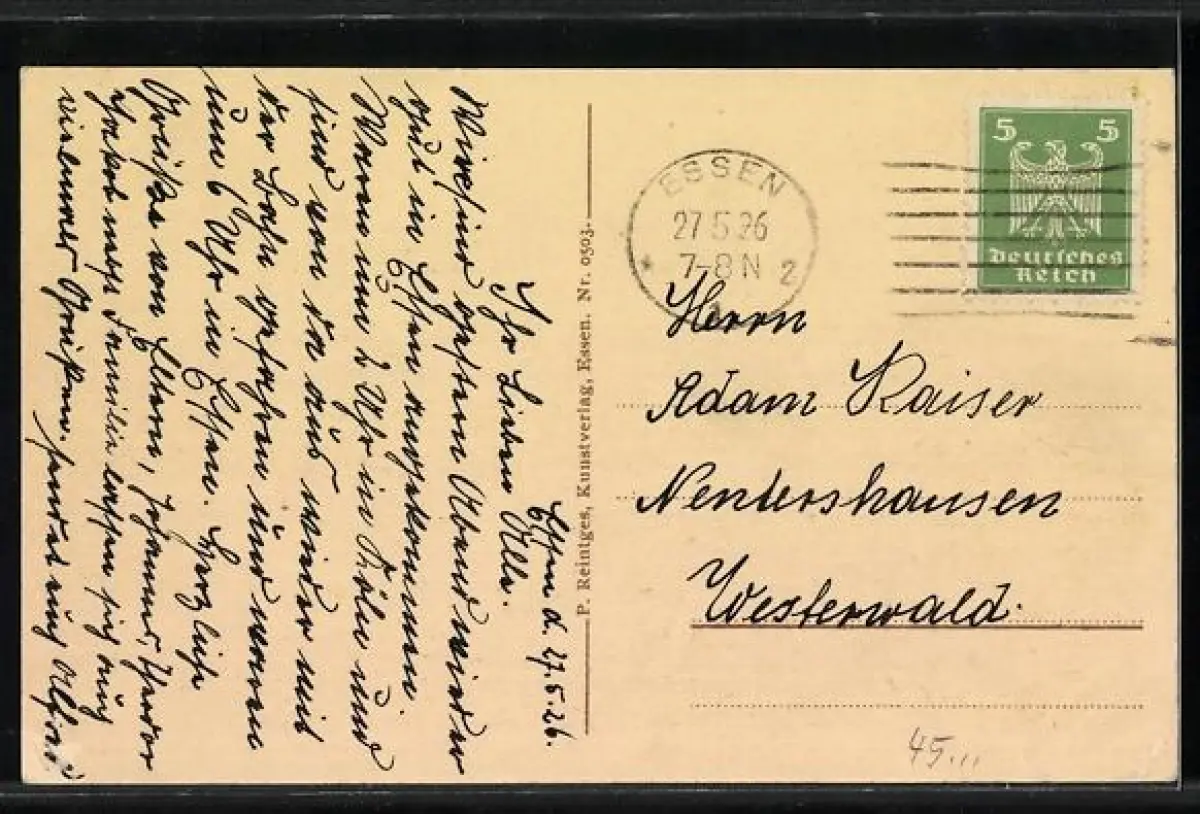 Essen d. 27.5.26.
Ihr Lieben Alle.
Wir sind gestern Abend wieder
gut in Essen angekommen.
Waren um 2 Uhr in Köln und
sind von da aus wieder mit
der Bahn gefahren und waren
um 6 Uhr in Essen. Herzliche
Grüße von Eltern, Johanna,
Jakob nebst Familie lassen sich auch
vielmals Grüßen.
P. Reintges, Kunstverlag, Essen. Nr. 0503.
ESSEN
27.5.26
7-8 N
* 2
5 5
Deutsches
Reich
Herrn
Adam Kaiser
Nentershausen
Westerwald.
45...